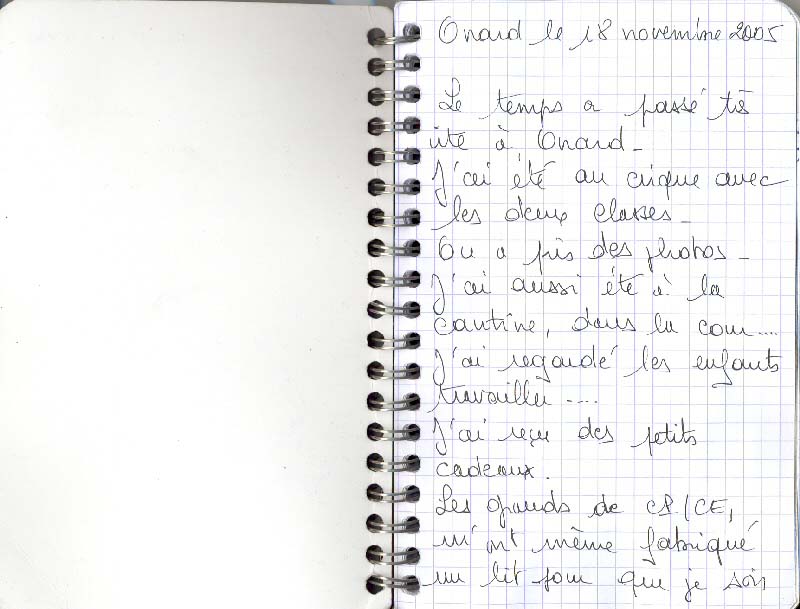 Onard le 18 novembre 2005
Le temps a passé très
vite à Onard.
J'ai été au cirque avec
les deux classes.
On a pris des photos.
J'ai aussi été à la
cantine, dans la cour....
J'ai regardé les enfants
travailler ....
J'ai reçu des petits
cadeaux.
Les grands de CP/CE1
m'ont même fabriqué
un lit pour que je sois